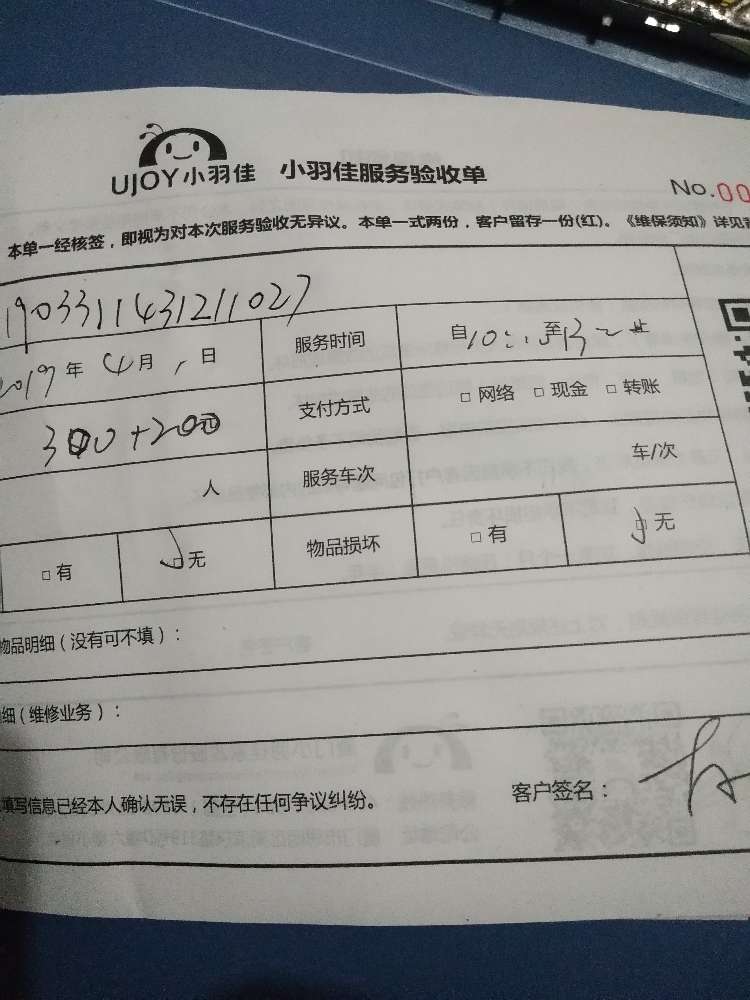 UJOY小羽佳 小羽佳服务验收单
No.00
本单一经核签，即视为对本次服务验收无异议。本单一式两份，客户留存一份(红)。《维保须知》详见
19033111431211027
2019年4月1日 服务时间 自10: 至13 止
300+200元 支付方式 □ 网络 □ 现金 □ 转账
人 服务车次 车/次
□ 有 □ 无 物品损坏 □ 有 □ 无
物品明细（没有可不填）：
细（维修业务）：
填写信息已经本人确认无误，不存在任何争议纠纷。 客户签名：